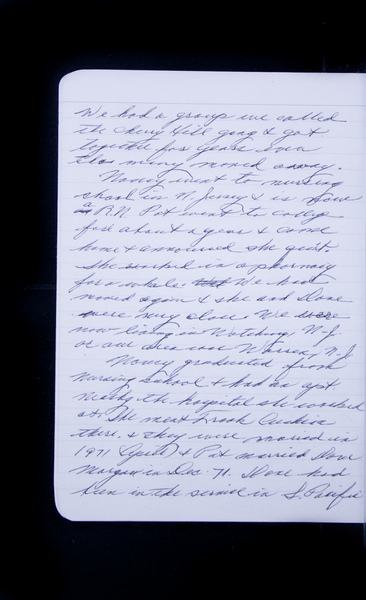 We had a group we called
the Cherry Hill gang & got
together for years even
tho many moved away.
Nancy went to nursing
school in N. Jersey & is now
a R.N. Pat went to college
for about a year & came
home & announced she quit.
She worked in a pharmacy
for a while We had
moved again & she and Dave
were very close. We were
now living in Watchung, N.J.
or our area was Warren, N.J.
Nancy graduated from
nursing school & had an apt
nearby the hospital she worked
at. She meet Frank
there & they were married in
1971 (April) & Pat married Dave
Morgan in Dec. 71. Dave had
been in the service in S. Pacific